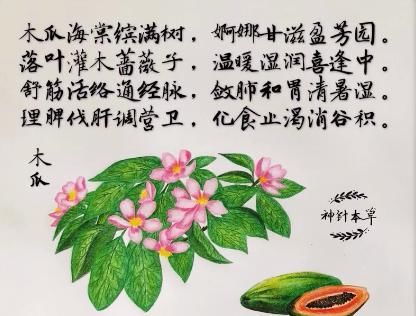 木瓜海棠缤满树，婀娜甘滋盈芳园。
落叶灌木蔷薇子，温暖湿润喜逢中。
舒筋活络通经脉，敛肺和胃清暑湿。
理脾伐肝调营卫，化食止渴消谷积。
木瓜
神针本草